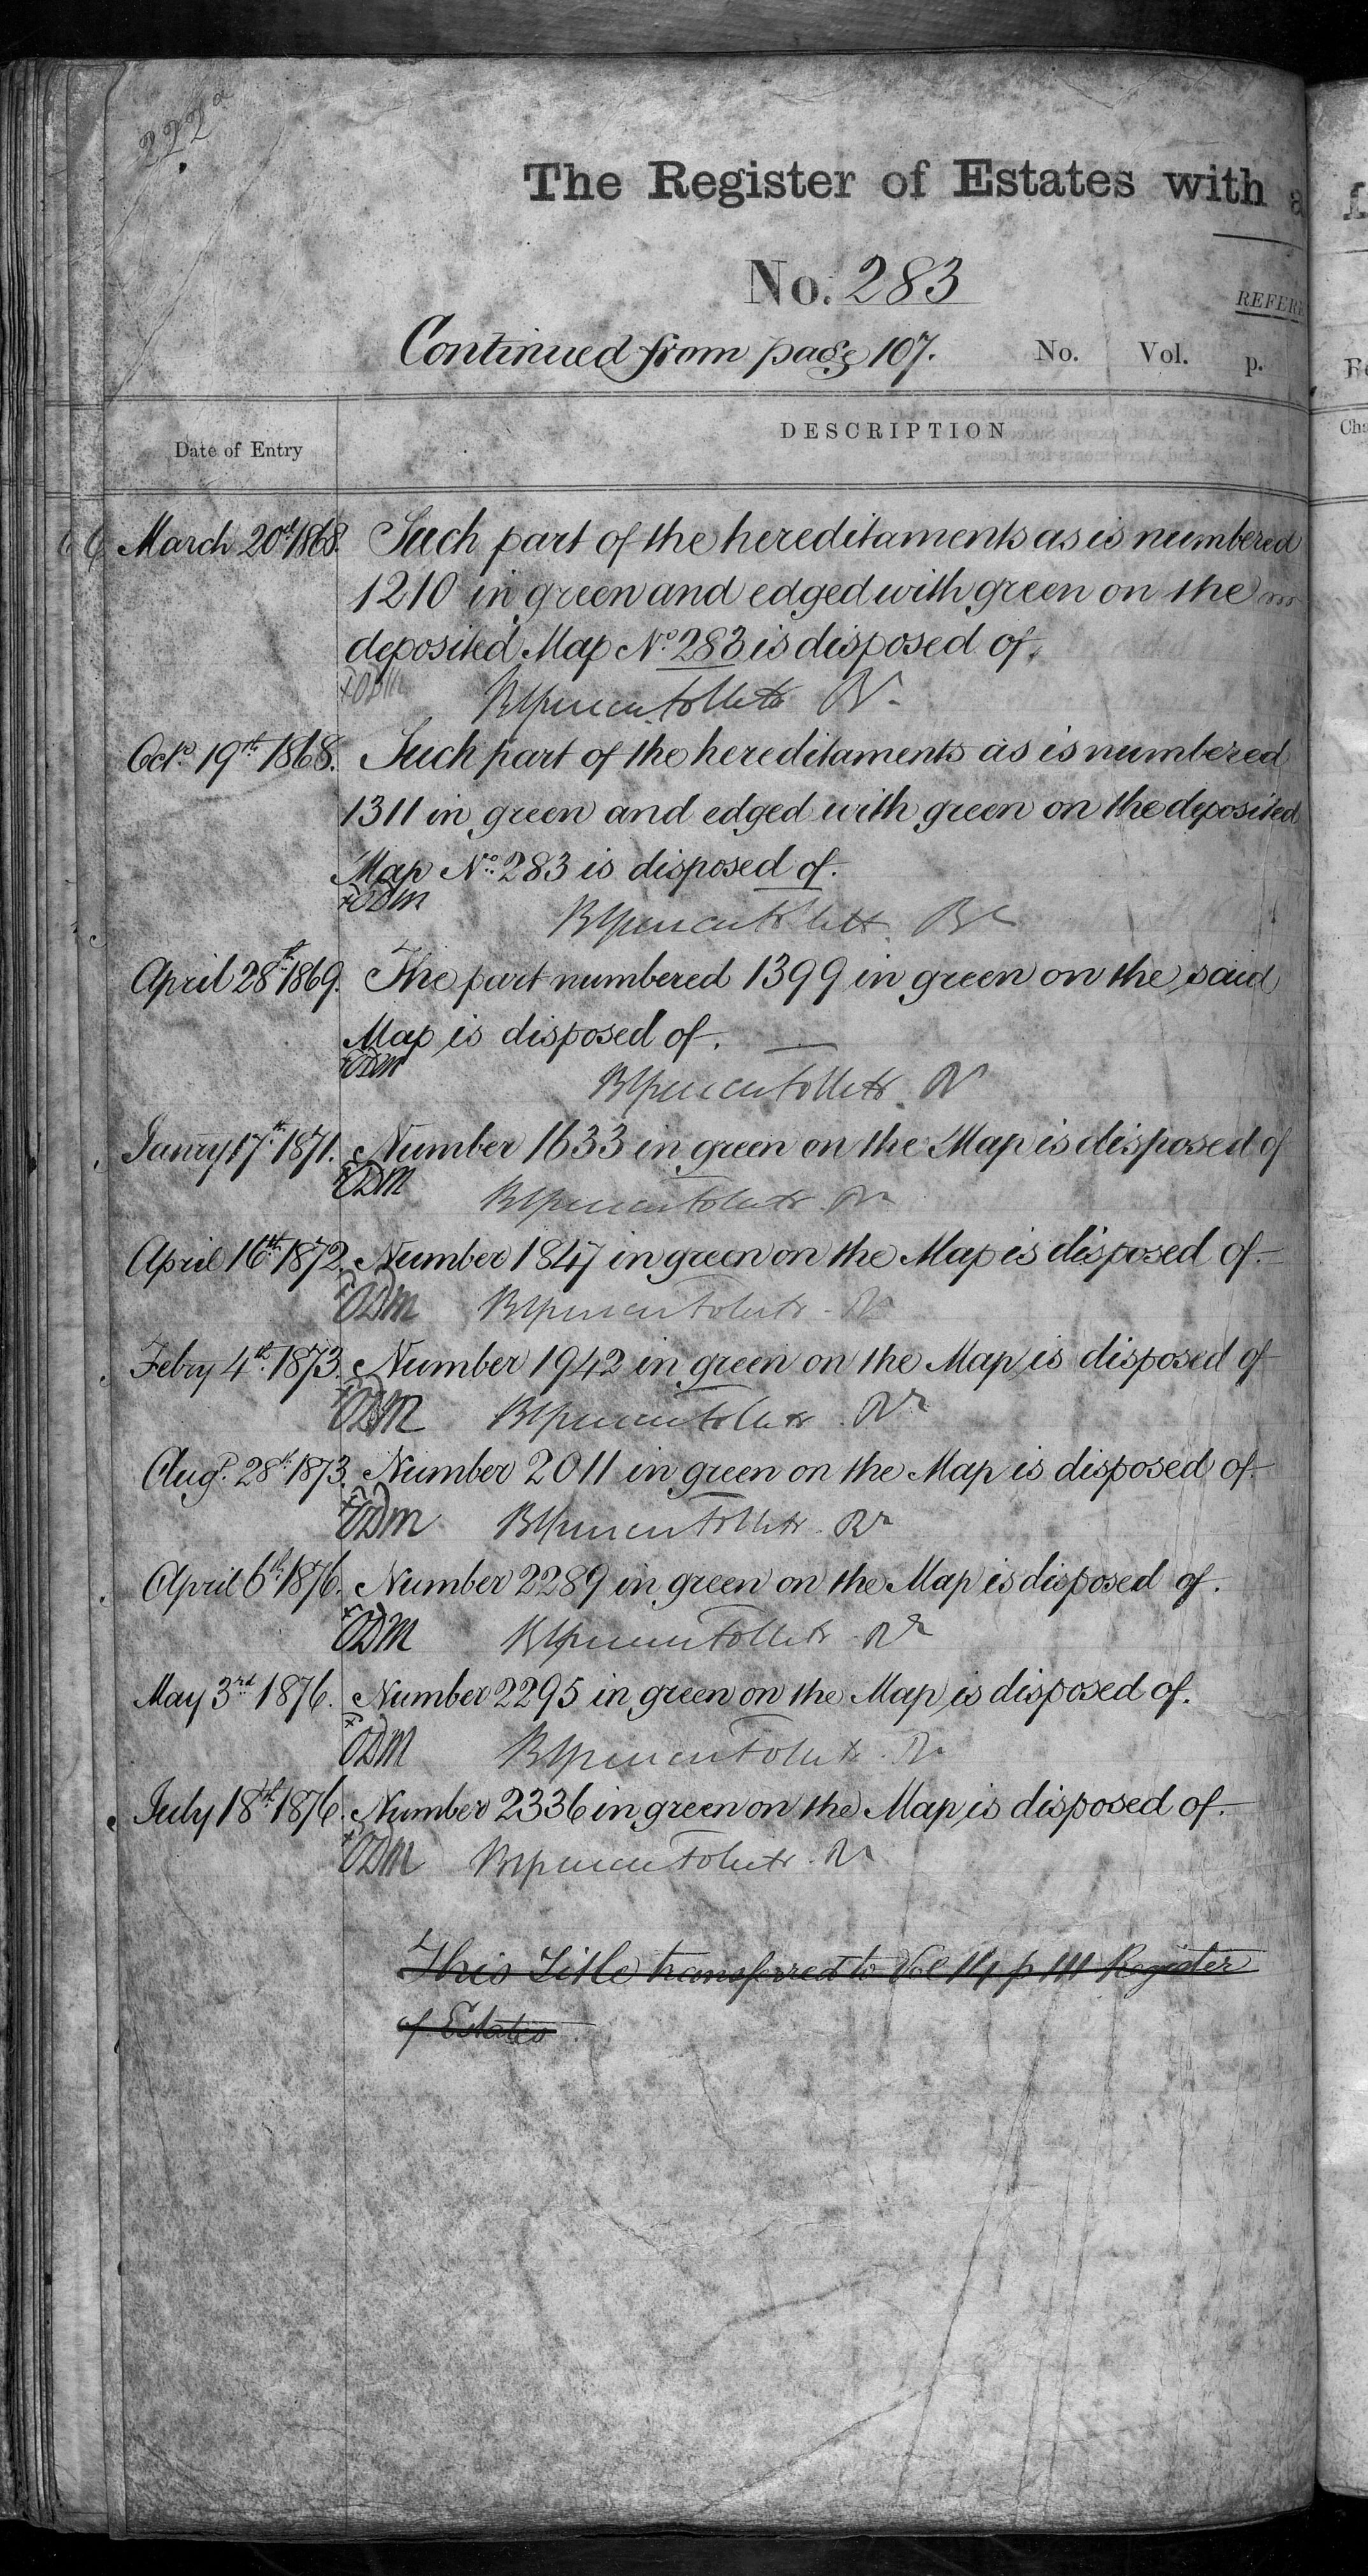 222a
The Register of Estates with a
No. 283
REFER
Continued from page 107. No. Vol. p.
Date of Entry DESCRIPTION
March 20th 1868. Such part of the hereditaments as is numbered
1210 in green and edged with green on the
deposited Map No. 283 is disposed of.
Octo. 19th. 1868. Such part of the hereditaments as is numbered
1311 in green and edged with green on the deposited
Map No. 283 is disposed of.
ODM
April 28th. 1869. The part numbered 1399 in green on the said
Map is disposed of.
ODM
Janry 17th. 1871. Number 1633 in green on the Map is disposed of
ODM
April 16th. 1872. Number 1847 in green on the Map is disposed of.
ODM
Febry 4th. 1873. Number 1942 in green on the Map is disposed of
ODM
Augt. 28th. 1873. Number 2011 in green on the Map is disposed of.
ODM
April 6th. 1876. Number 2289 in green on the Map is disposed of.
ODM
May 3rd. 1876. Number 2295 in green on the Map is disposed of.
ODM
July 18th. 1876. Number 2336 in green on the Map is disposed of.
ODM
This Title transferred to Vol 14 p 111 Register
of Estates